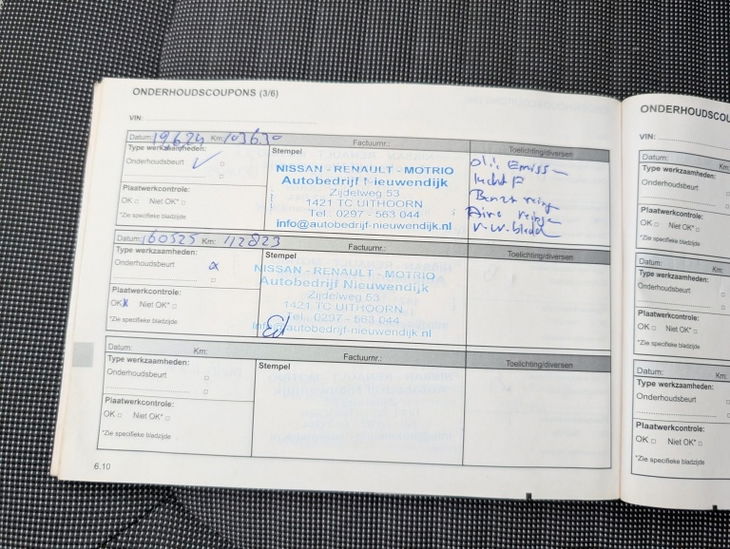 ONDERHOUDSCOUPONS (3/6)
VIN:
Datum: 19624 Km: 103630
Factuurnr.:
Toelichting/diversen
Type werkzaamheden:
Onderhoudsbeurt
Plaatwerkcontrole:
OK Niet OK*
*Zie specifieke bladzijde
Stempel
NISSAN - RENAULT - MOTRIO
Autobedrijf Nieuwendijk
Zijdelweg 53
1421 TC UITHOORN
Tel.: 0297 - 563 044
info@autobedrijf-nieuwendijk.nl
olie
lucht F
reinig
Datum: 160525 Km: 112823
Factuurnr.:
Type werkzaamheden:
Onderhoudsbeurt
Plaatwerkcontrole:
OK Niet OK*
*Zie specifieke bladzijde
NISSAN - RENAULT - MOTRIO
Autobedrijf Nieuwendijk
Zijdelweg 53
1421 TC UITHOORN
Tel.: 0297 - 563 044
info@autobedrijf-nieuwendijk.nl
Datum: Km:
Factuurnr.:
Toelichting/diversen
Type werkzaamheden:
Onderhoudsbeurt
Plaatwerkcontrole:
OK Niet OK*
*Zie specifieke bladzijde
Stempel
6.10
ONDERHOUDSCOU
VIN:
Datum: Km:
Type werkzaamheden:
Onderhoudsbeurt
Plaatwerkcontrole:
OK Niet OK*
*Zie specifieke bladzijde
Datum: Km:
Type werkzaamheden:
Onderhoudsbeurt
Plaatwerkcontrole:
OK Niet OK*
*Zie specifieke bladzijde
Datum: Km:
Type werkzaamheden:
Onderhoudsbeurt
Plaatwerkcontrole:
OK Niet OK*
*Zie specifieke bladzijde